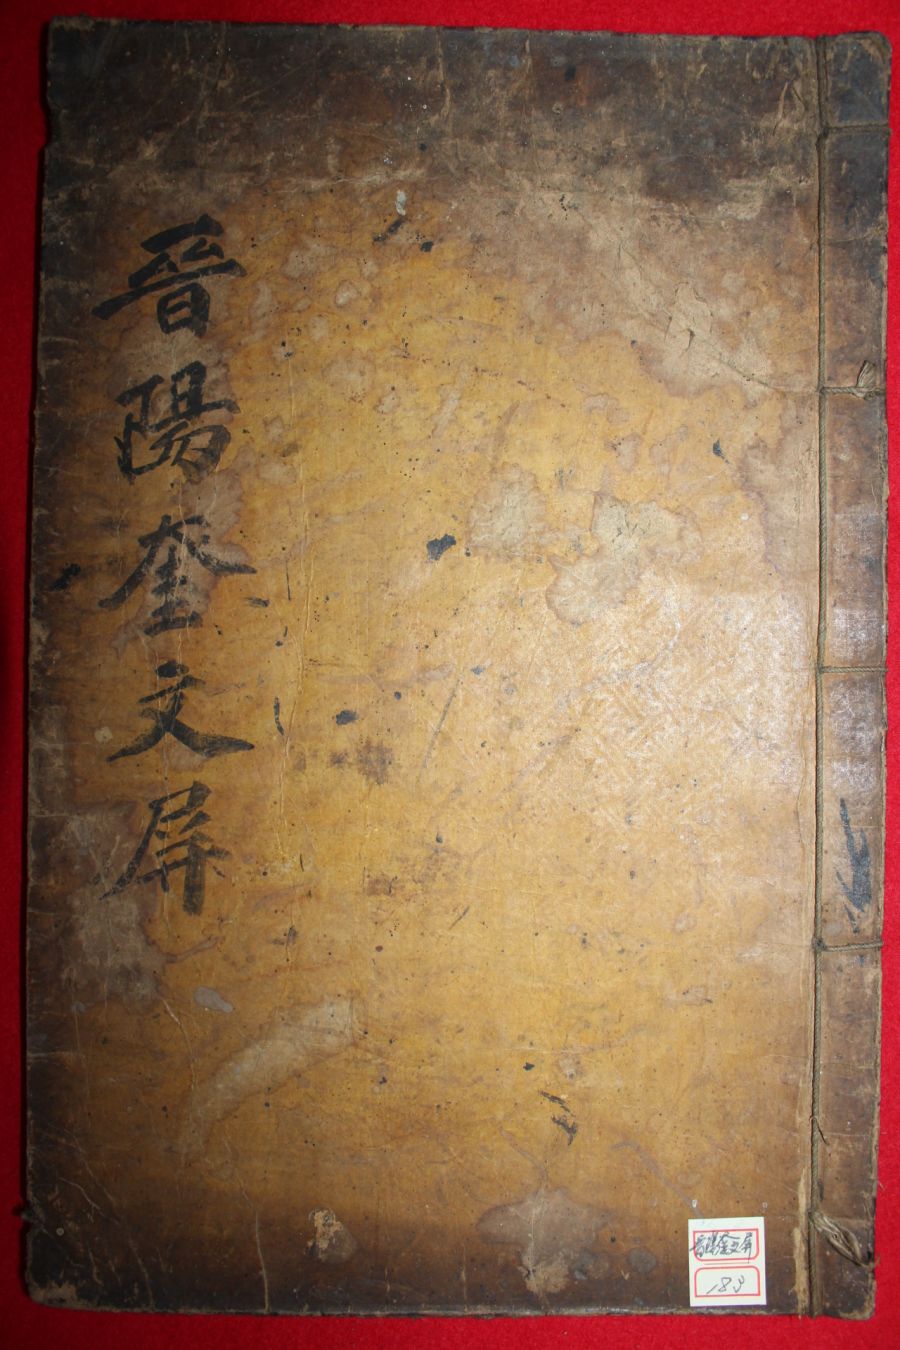 晉陽奎文屏
晉陽奎文屏
183